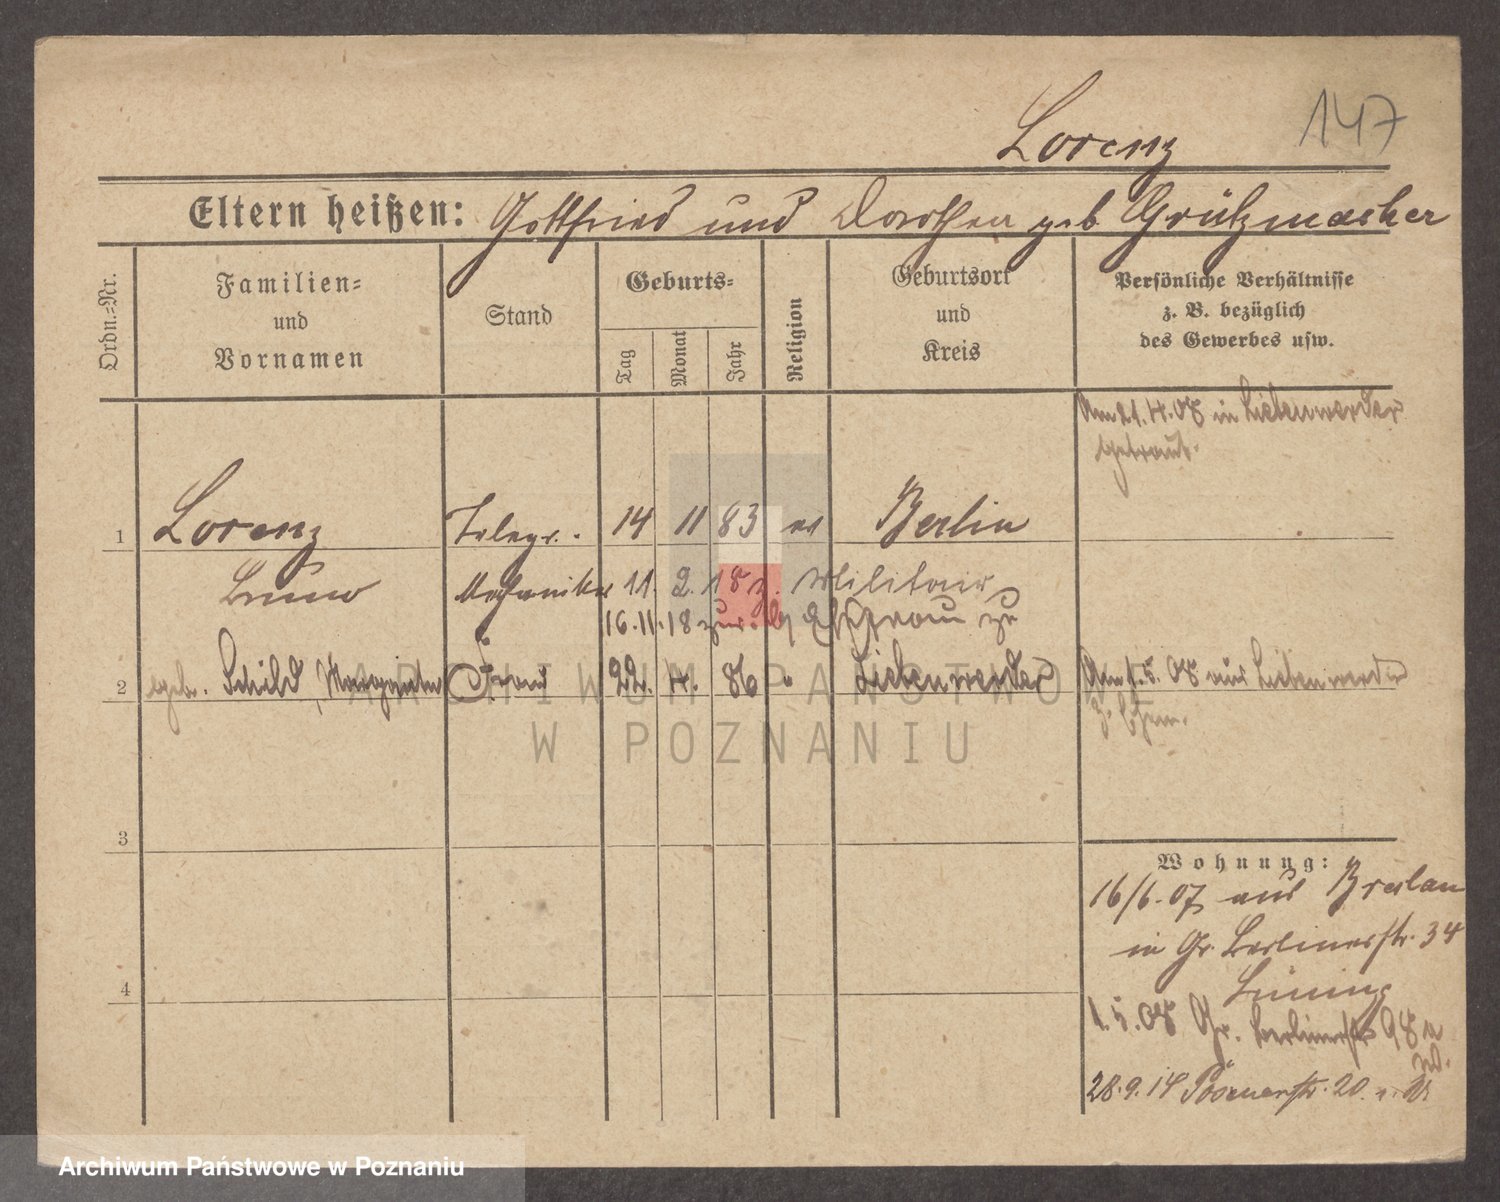 147
Lorenz
Eltern heißen: Gottfried und Dorothea geb Grützmacher
Ordn.-Nr.
Familien-
und
Vornamen
Stand
Geburts-
Tag
Monat
Jahr
Religion
Geburtsort
und
Kreis
Persönliche Verhältnisse
z. B. bezüglich
des Gewerbes usw.
Am 21.4.08 in Liebenwerder
getraut.
1 Lorenz Telegr.- 14 11 83 ev Berlin
Bruno Mechaniker 11. 2. 18 z. Militair
16.11.18 zur. v. zu
2 geb. Schild, Margarete Frau 22. 4. 86 " Liebenwerder
Am 1.5.08 aus Liebenwerder
z. Ehem.
3
4
Wohnung:
16/6.07 aus Breslau
in Gr. Berlinerstr. 34
Brüning
1.5.08 Gr. Berlinerstr 98a
28.9.14 Posenerstr. 20.
ARCHIWUM PAŃSTWOWE
W POZNANIU
Archiwum Państwowe w Poznaniu